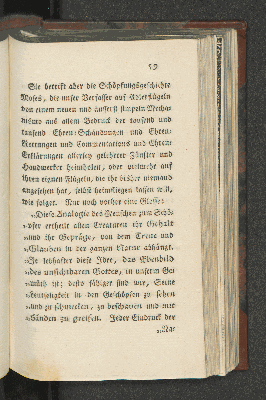 59
Sie betrift aber die Schöpfungsgeschichte
Moses, die unser Verfasser auf Adlerflügeln
von einem neuen und äusserst simpeln Mecha-
nismo aus allem Bedruck der tausend und
tausend Ehren-Schändungen und Ehren-
Rettungen und Commentationen und Ehren-
Erklärungen allerley gelehrter Zünfter und
Handwerker heimholen, oder vielmehr auf
ihren eigenen Flügeln, die ihr bisher niemand
angesehen hat, selbst heimfliegen lassen will,
wie folget. Nur noch vorher eine Glosse:
„Diese Analogie des Menschen zum Schö-
„pfer ertheilt allen Creaturen ihr Gehalt
„und ihr Gepräge, von dem Treue und
„Glauben in der ganzen Natur abhängt.
„Je lebhafter diese Idee, das Ebenbild
„des unsichtbaren Gottes, in unserm Ge-
„müth ist; desto fähiger sind wir, Seine
„Leutseligkeit in den Geschöpfen zu sehen
„und zu schmecken, zu beschauen und mit
„Händen zu greifen. Jeder Eindruck der
„Na-